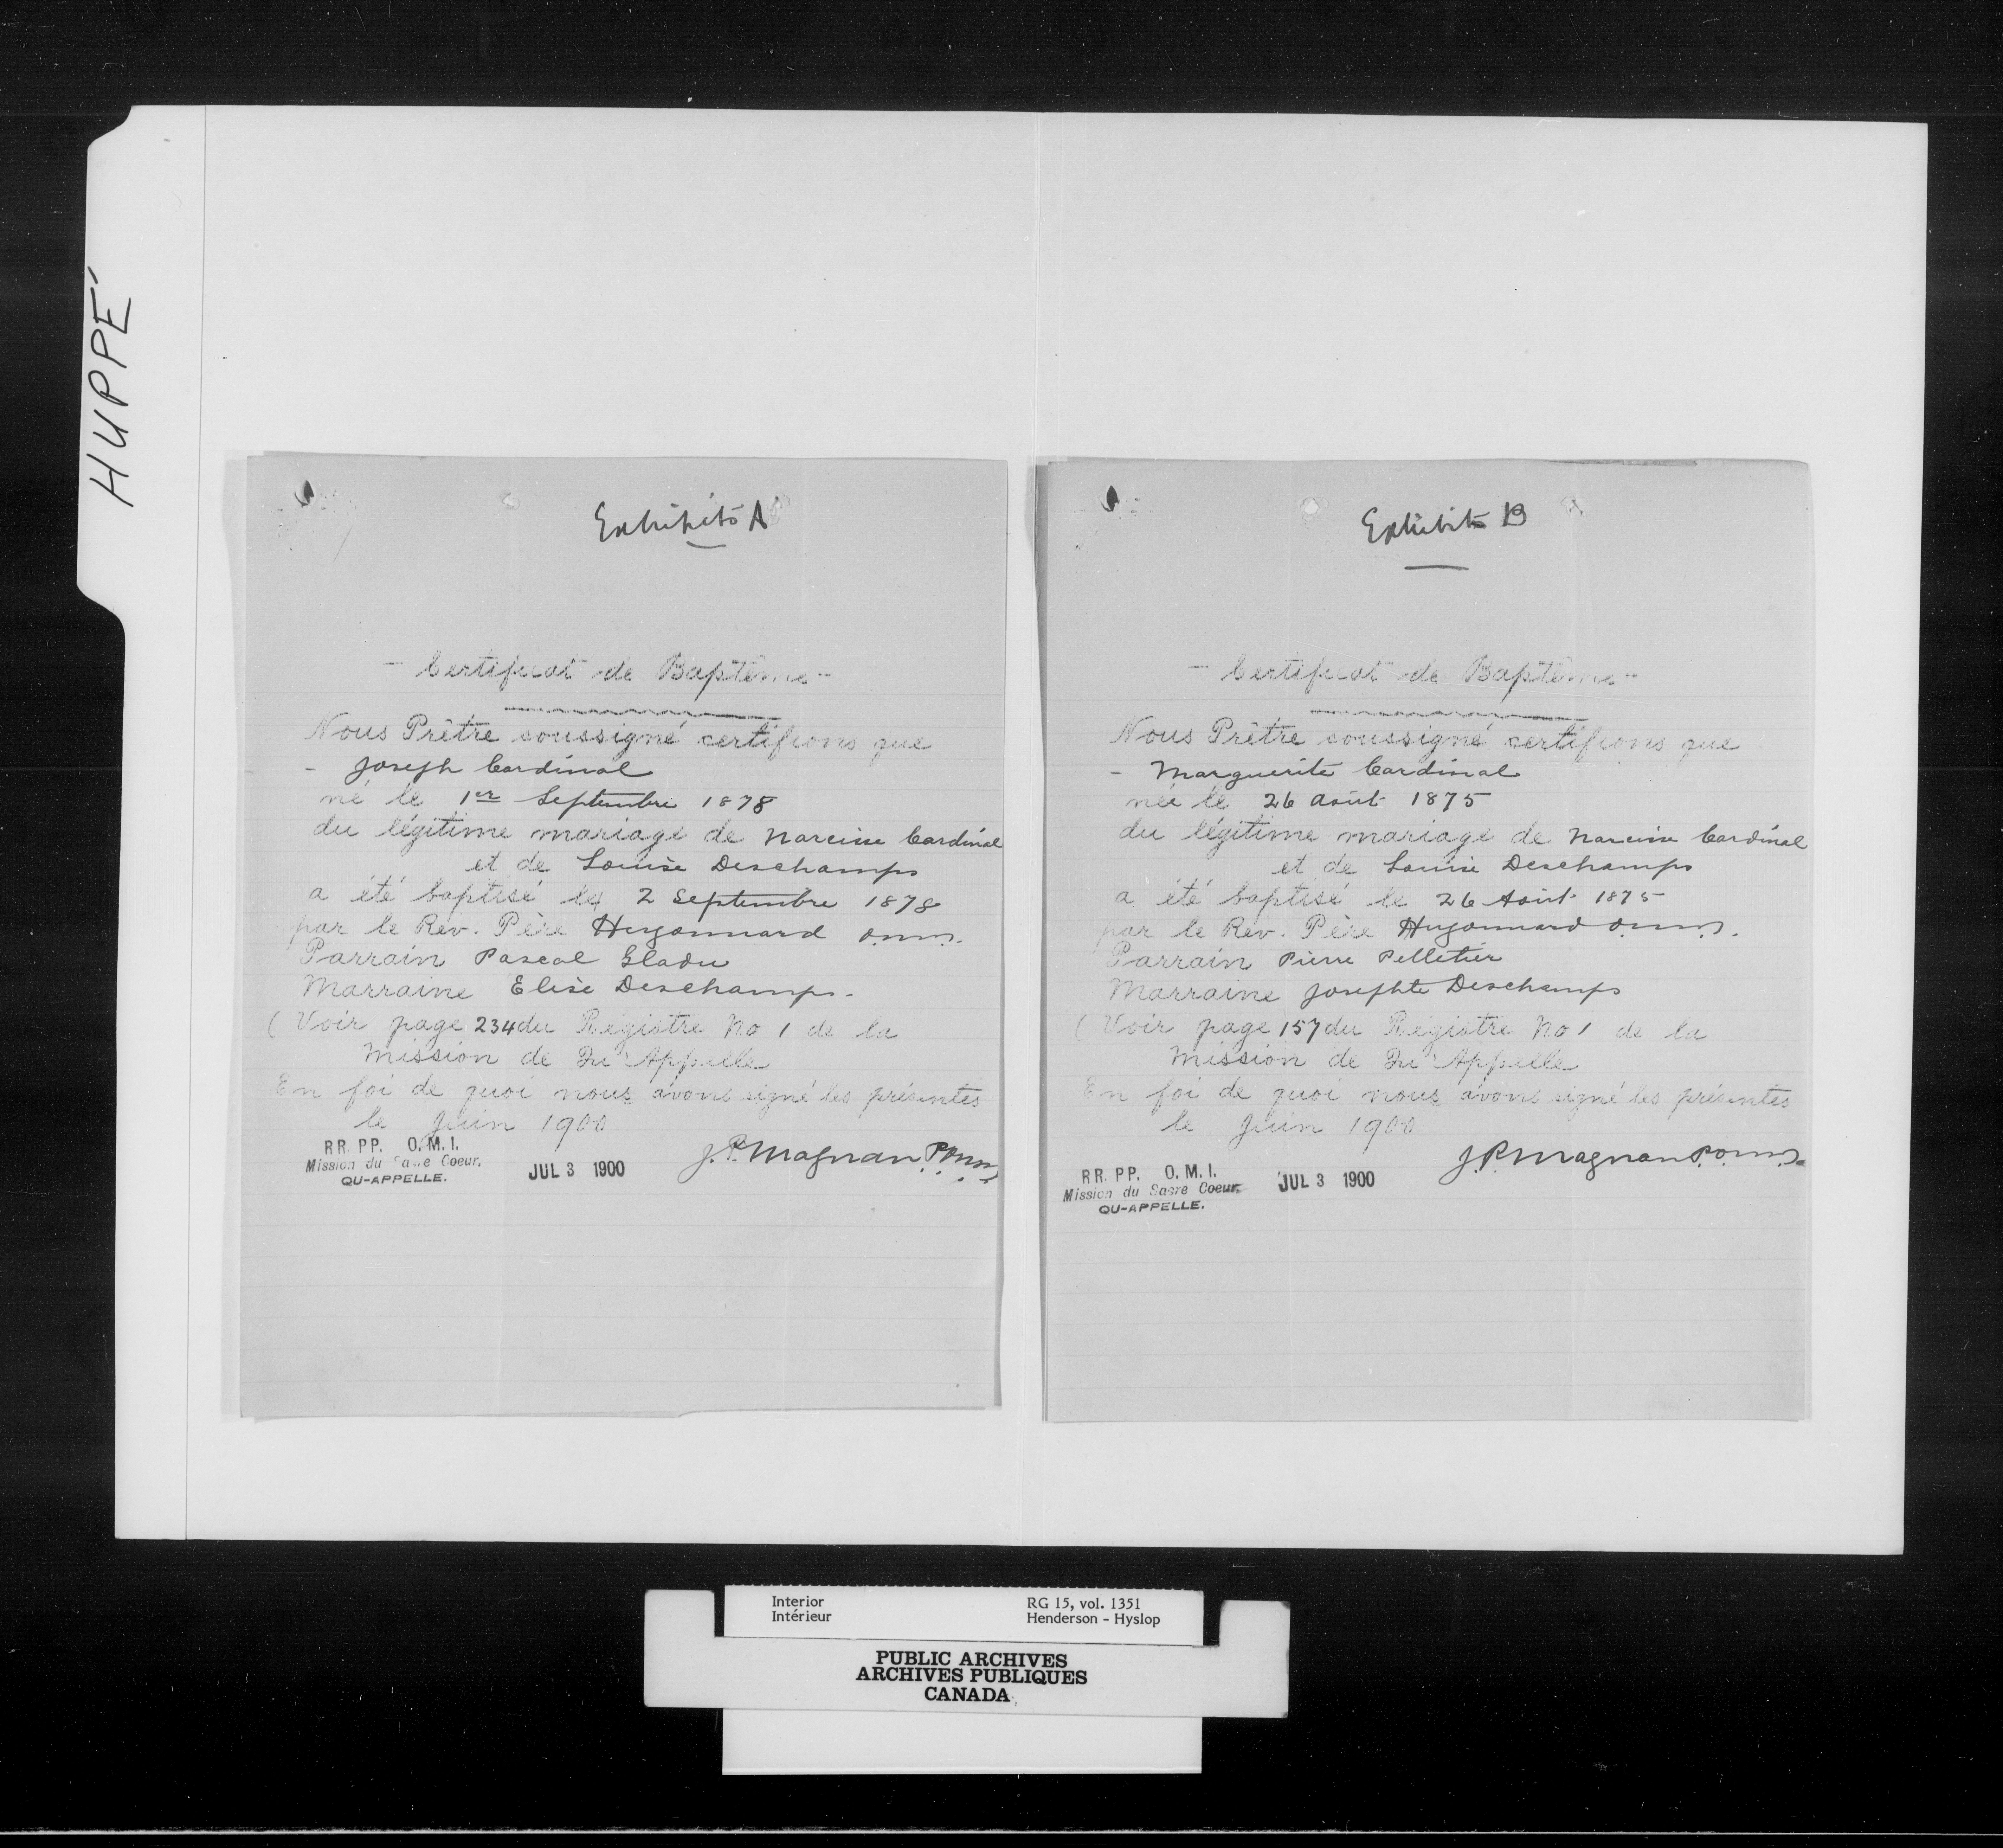 HUPPÉ
Exhibit A
- Certificat de Baptême -
Nous Prêtre soussigné certifions que
- Joseph Cardinal
né le 1er Septembre 1878
du légitime mariage de Narcisse Cardinal
et de Louise Deschamps
a été baptisé le 2 Septembre 1878
par le Rév. Père Hugonnard o.m.i.
Parrain Pascal Gladu
Marraine Elise Deschamps.
(Voir page 234 du Régistre No 1 de la
Mission de Qu'Appelle
En foi de quoi nous avons signé les présentes
le Juin 1900
RR. PP. O.M.I.
Mission du Sacre Coeur.
QU-APPELLE.
JUL 3 1900
J.P. Magnan P.o.m.i.
Exhibit B
- Certificat de Baptême -
Nous Prêtre soussigné certifions que
- Marguerite Cardinal
née le 26 Août 1875
du légitime mariage de Narcisse Cardinal
et de Louise Deschamps
a été baptisé le 26 Août 1875
par le Rév. Père Hugonnard o.m.i.
Parrain Pierre Pelletier
Marraine Josephte Deschamps
(Voir page 157 du Régistre No 1 de la
Mission de Qu'Appelle
En foi de quoi nous avons signé les présentes
le Juin 1900
J.P. Magnan P.o.m.i.
RR. PP. O.M.I.
Mission du Sacre Coeur.
QU-APPELLE.
JUL 3 1900
Interior
Intérieur
RG 15, vol. 1351
Henderson - Hyslop
PUBLIC ARCHIVES
ARCHIVES PUBLIQUES
CANADA